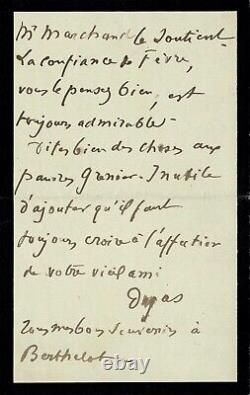 Mr Marchand le soutient.
La confiance de Fèvre,
vous le pensez bien, est
toujours admirable.
Dites bien des choses aux
pauvres Granier. Inutile
d'ajouter qu'il faut
toujours croire à l'affection
de votre vieil ami
Degas
Tous mes bons souvenirs à
Berthelot
© ebay.com